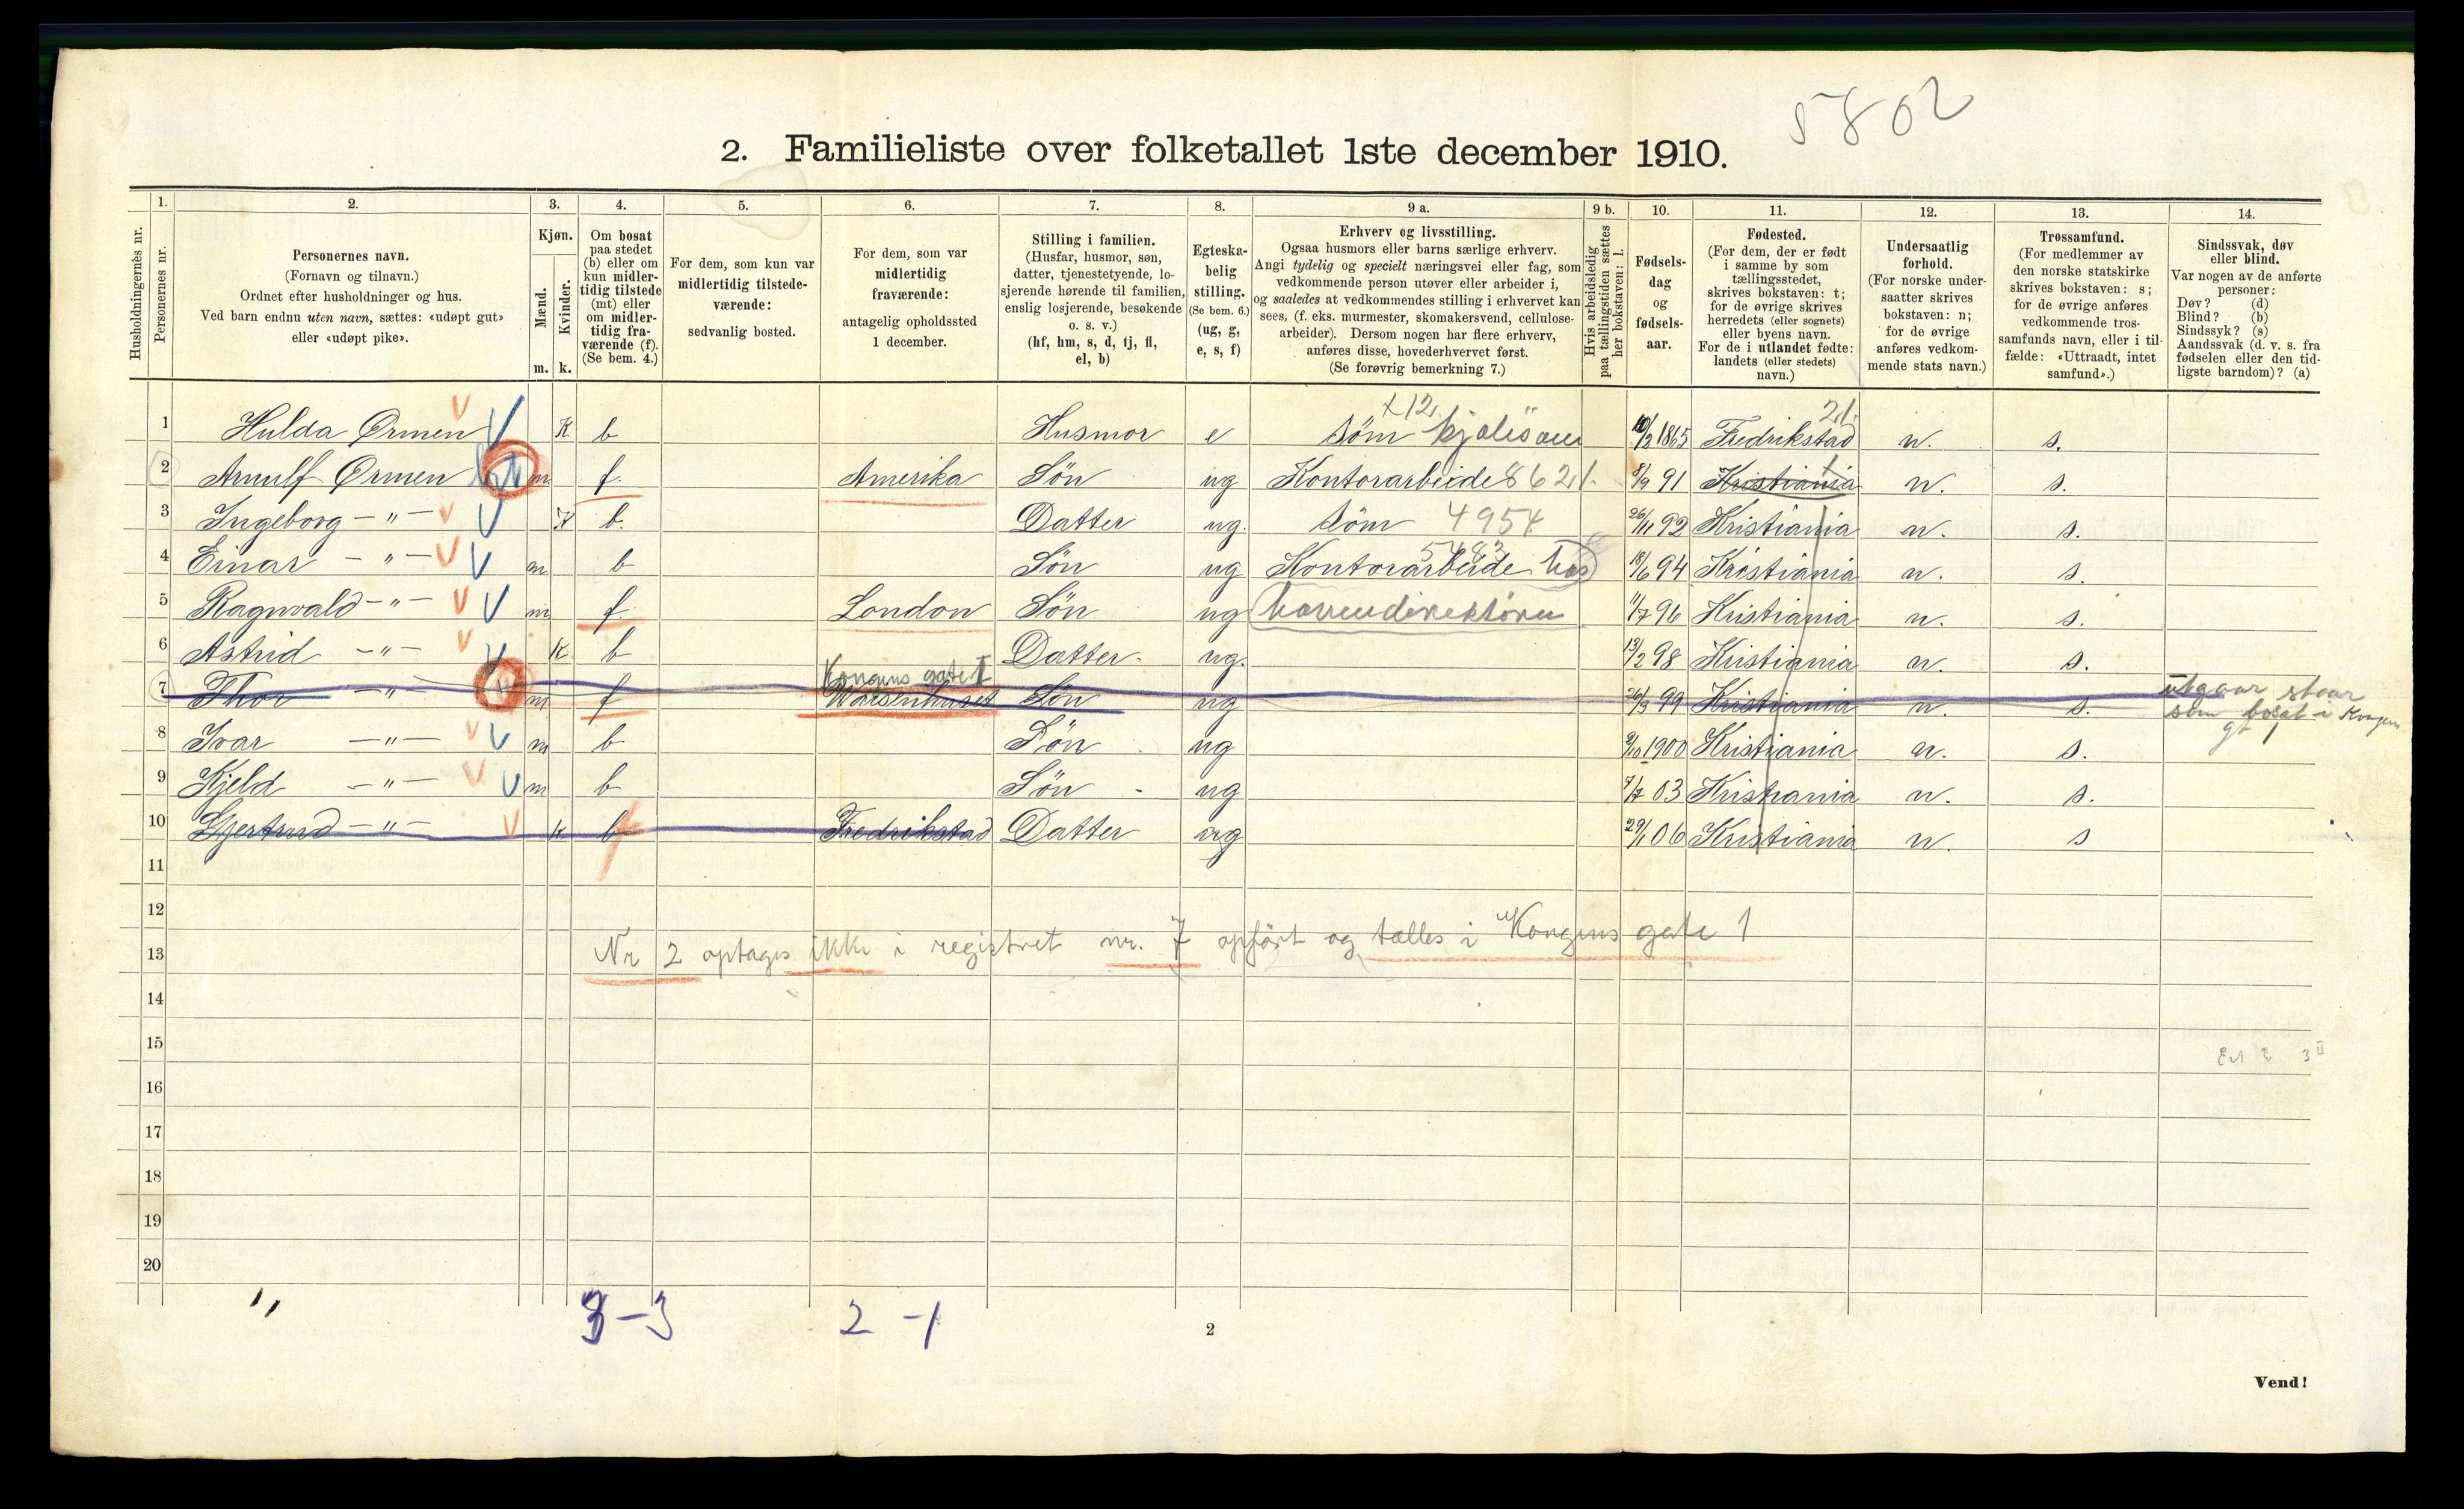 5802
2. Familieliste over folketallet 1ste december 1910.
Husholdningernes nr.
1. Personernes nr.
2. Personernes navn. (Fornavn og tilnavn.) Ordnet efter husholdninger og hus. Ved barn endnu uten navn, sættes: «udøpt gut» eller «udøpt pike».
3. Kjøn. Mænd. m. Kvinder. k.
4. Om bosat paa stedet (b) eller om kun midlertidig tilstede (mt) eller om midlertidig fraværende (f). (Se bem. 4.)
5. For dem, som kun var midlertidig tilstedeværende: sedvanlig bosted.
6. For dem, som var midlertidig fraværende: antagelig opholdssted 1 december.
7. Stilling i familien. (Husfar, husmor, søn, datter, tjenestetyende, losjerende hørende til familien, enslig losjerende, besøkende o. s. v.) (hf, hm, s, d, tj, fl, el, b)
8. Egteskabelig stilling. (Se bem. 6.) (ug, g, e, s, f)
9 a. Erhverv og livsstilling. Ogsaa husmors eller barns særlige erhverv. Angi tydelig og specielt næringsvei eller fag, som vedkommende person utøver eller arbeider i, og saaledes at vedkommendes stilling i erhvervet kan sees, (f. eks. murmester, skomakersvend, cellulosearbeider). Dersom nogen har flere erhverv, anføres disse, hovederhvervet først. (Se forøvrig bemerkning 7.)
9 b. Hvis arbeidsledig paa tællingstiden sættes her bokstaven: l.
10. Fødselsdag og fødselsaar.
11. Fødested. (For dem, der er født i samme by som tællingsstedet, skrives bokstaven: t; for de øvrige skrives herredets (eller sognets) eller byens navn. For de i utlandet fødte: landets (eller stedets) navn.)
12. Undersaatlig forhold. (For norske undersaatter skrives bokstaven: n; for de øvrige anføres vedkommende stats navn.)
13. Trossamfund. (For medlemmer av den norske statskirke skrives bokstaven: s; for de øvrige anføres vedkommende trossamfunds navn, eller i tilfælde: «Uttraadt, intet samfund».)
14. Sindssvak, døv eller blind. Var nogen av de anførte personer: Døv? (d) Blind? (b) Sindssyk? (s) Aandssvak (d. v. s. fra fødselen eller den tidligste barndom)? (a)
1 Hulda Ørmen K b Husmor e Søm kjolesøm 10/2 1865 Fredrikstad n. s.
2 Arnulf Ørmen m f. Amerika Søn ug Kontorarbeide 8621. 8/9 91 Kristiania n. s.
3 Ingeborg -"- K b. Datter ug. Søm 4954 26/11 92 Kristiania n. s.
4 Einar -"- m b Søn ug Kontorarbeide hos 5483 18/6 94 Kristiania n. s.
5 Ragnvald -"- m f. London Søn ug havnedirektøren 11/7 96 Kristiania n. s.
6 Astrid -"- K b Datter ug. 13/2 98 Kristiania n. s.
Kongens gate 1
7 Thor -"- m f Waisenhuset Søn ug 26/3 99 Kristiania n. s. utgaar staar som bosat i Kongens gt 1
8 Ivar -"- m b Søn ug 9/10 1900 Kristiania n. s.
9 Kjeld -"- m b Søn ug 7/7 03 Kristiania n. s.
10 Gjertrud -"- k b Fredrikstad Datter ug 29/1 06 Kristiania n. s
11
12
13 Nr 2 optages ikke i registret nr. 7 opført og tælles i Kongens gate 1
14
15
16
17
18
19
20
3-3
2-1
2
Vend!